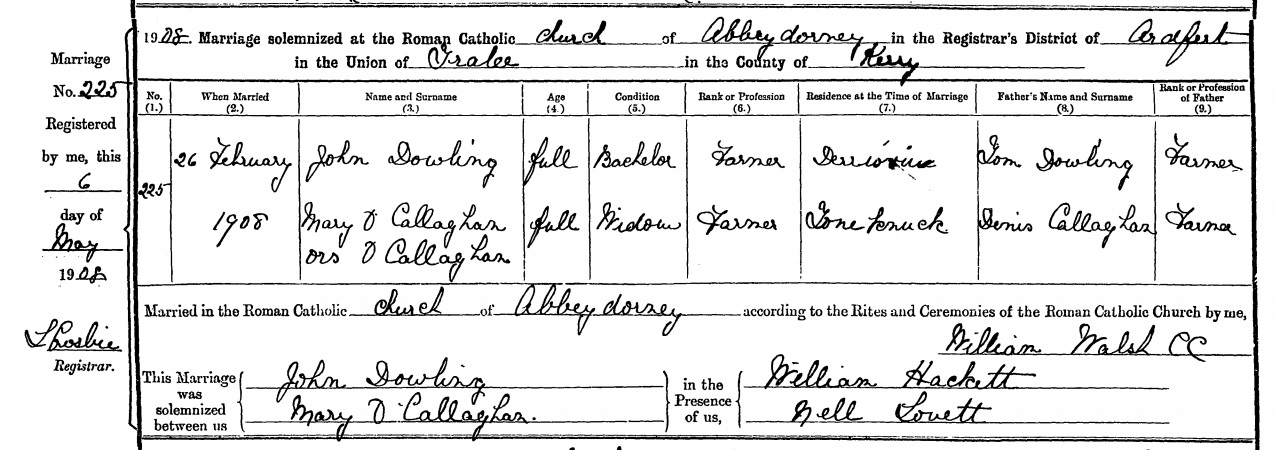 1908. Marriage solemnized at the Roman Catholic church of Abbeydorney in the Registrar's District of Ardfert
in the Union of Tralee in the County of Kerry
Marriage
No. 225
Registered
by me, this
6
day of
May
1908
Registrar.
No. (1.) When Married (2.) Name and Surname (3.) Age (4.) Condition (5.) Rank or Profession (6.) Residence at the Time of Marriage (7.) Father's Name and Surname (8.) Rank or Profession of Father (9.)
26 February John Dowling full Bachelor Farmer Tom Dowling Farmer
225
1908 Mary O'Callaghan full Widow Farmer Toneknuck Denis Callaghan Farmer
ors O Callaghan
Married in the Roman Catholic church of Abbeydorney according to the Rites and Ceremonies of the Roman Catholic Church by me,
William Walsh CC
This Marriage was solemnized between us
John Dowling
Mary O'Callaghan.
in the Presence of us,
William Hackett
Nell Lovett